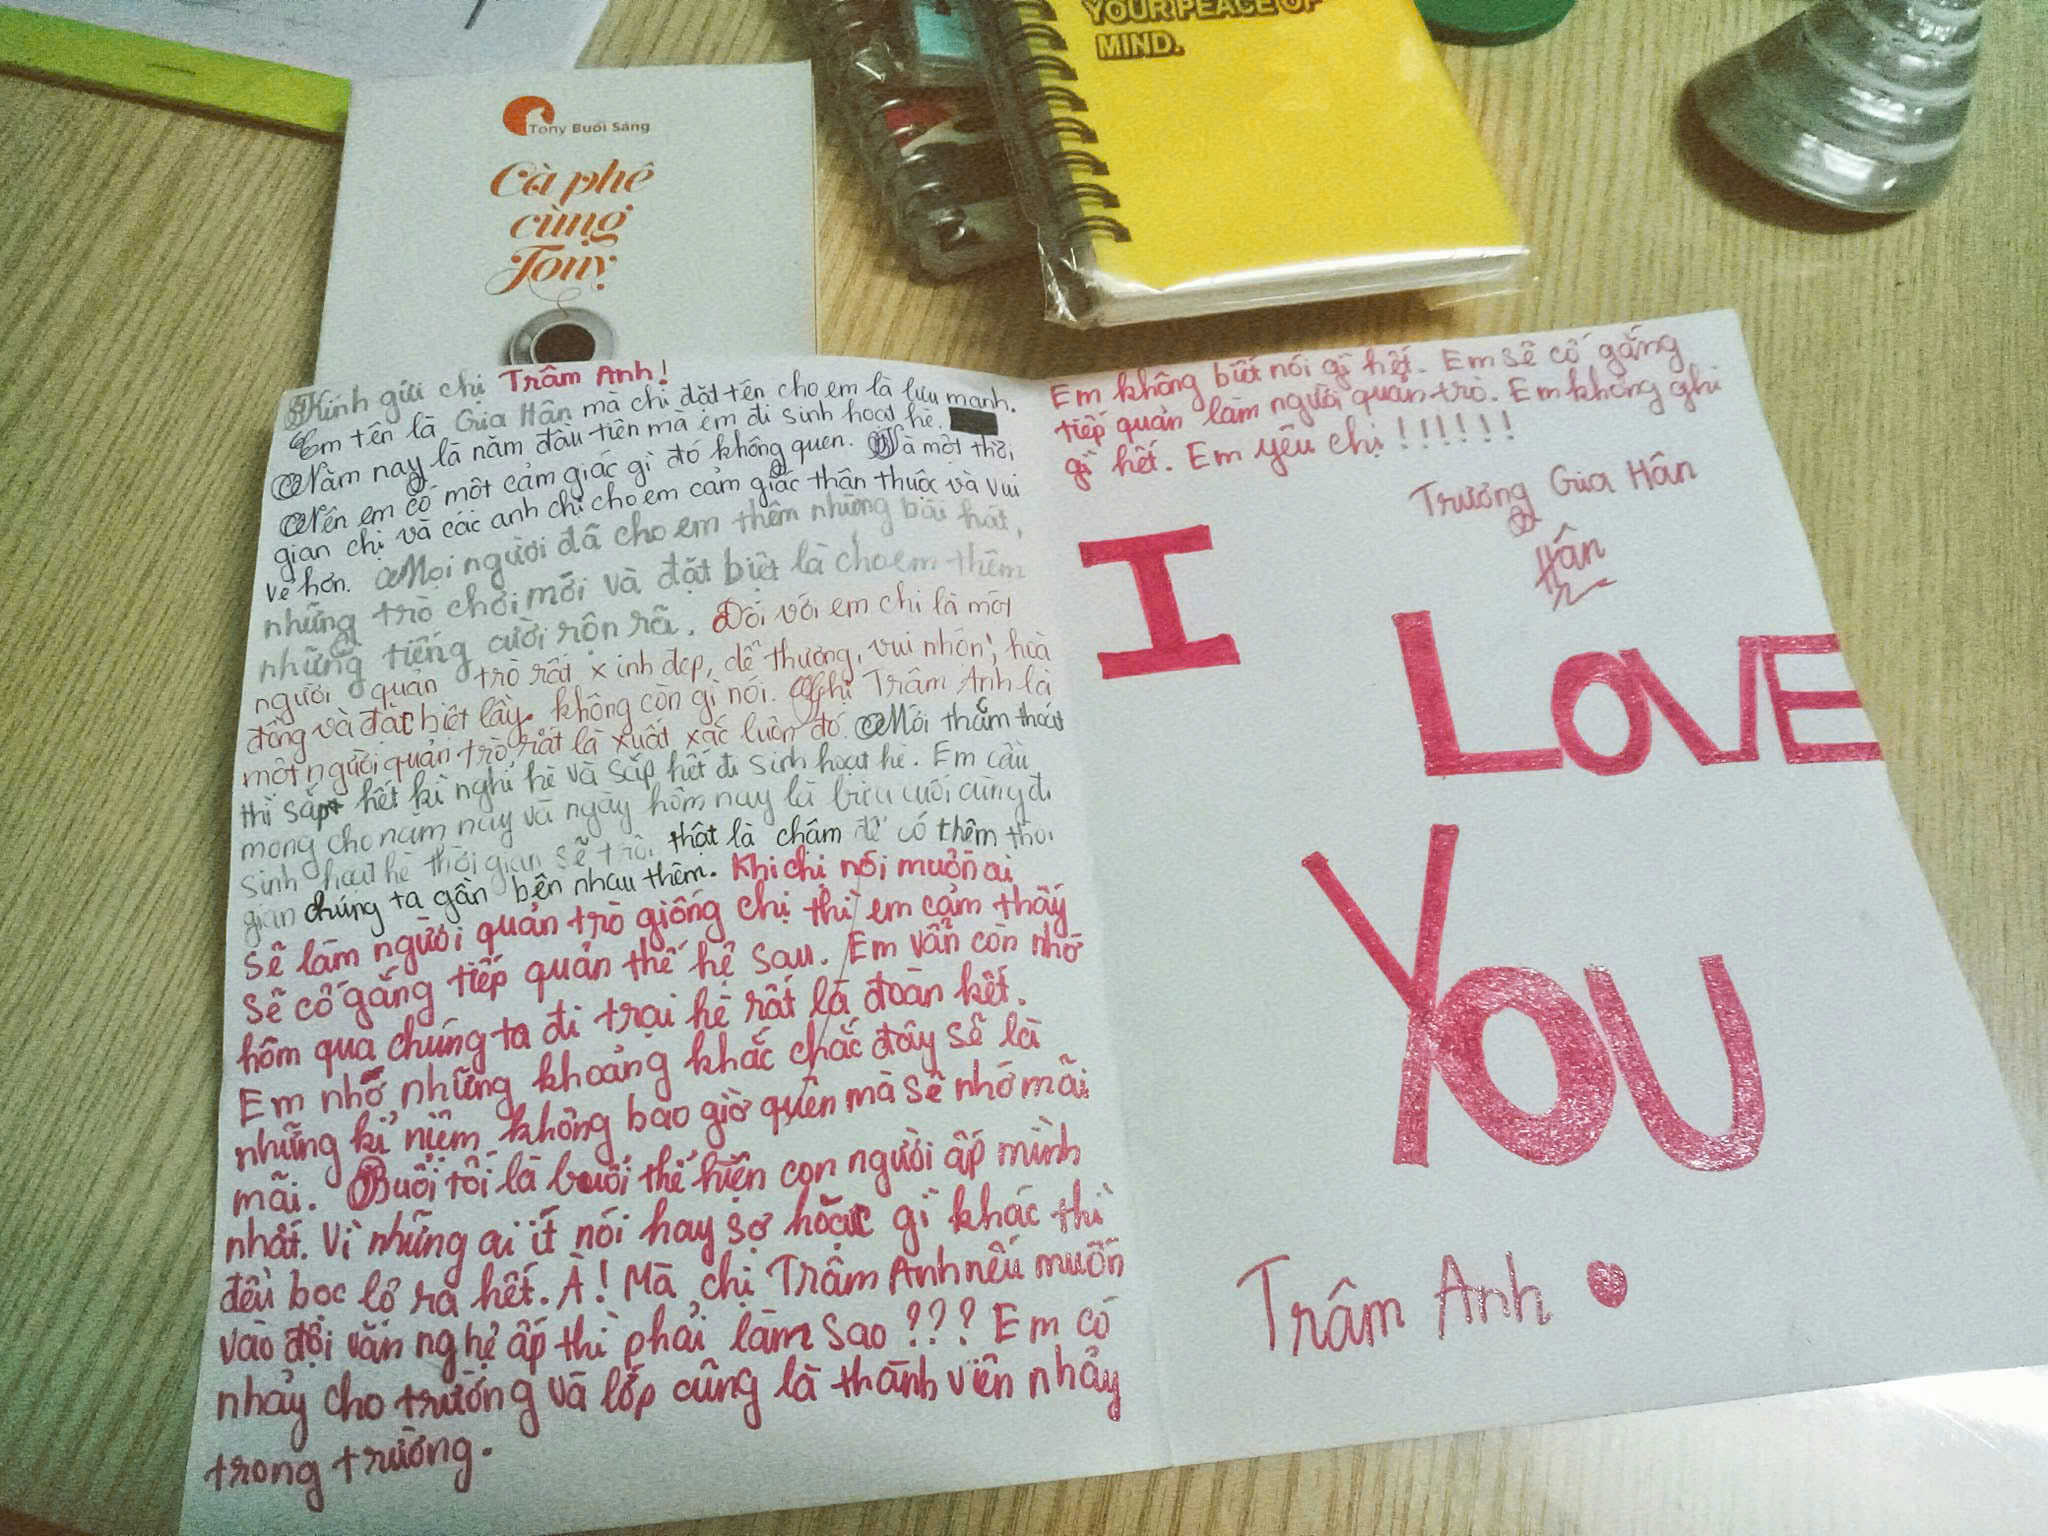 YOUR PEACE OF
MIND.
Tony Buổi Sáng
Cà phê
cùng
Tony
Kính gửi chị Trâm Anh!
Em tên là Gia Hân mà chị đặt tên cho em là lưu manh.
Năm nay là năm đầu tiên mà em đi sinh hoạt hè.
Nên em có một cảm giác gì đó không quen. Và một thời
gian chị và các anh chị cho em cảm giác thân thuộc và vui
vẻ hơn. Mọi người đã cho em thêm những bài hát,
những trò chơi mới và đặt biệt là cho em thêm
những tiếng cười rộn rã. Đối với em chị là một
người quản trò rất xinh đẹp, dễ thương, vui nhộn, hoà
đồng và đặt biệt lầy không còn gì nói. Chị Trâm Anh là
một người quản trò rất là xuất xắc luôn đó. Mới thắm thoát
thì sắp hết kì nghỉ hè và sắp hết đi sinh hoạt hè. Em cầu
mong cho năm nay và ngày hôm nay là buổi cuối cùng đi
sinh hoạt hè thời gian sẽ trôi thật là chậm để có thêm thời
gian chúng ta gần bên nhau thêm. Khi chị nói muốn ai
sẽ làm người quản trò giống chị thì em cảm thấy
sẽ cố gắng tiếp quản thế hệ sau. Em vẫn còn nhớ
hôm qua chúng ta đi trại hè rất là đoàn kết.
Em nhớ những khoảng khắc chắc đây sẽ là
những kỉ niệm không bao giờ quên mà sẽ nhớ mãi
mãi. Buổi tối là buổi thể hiện con người ấp mình
nhất. Vì những ai ít nói hay sợ hoặc gì khác thì
đều bọc lộ ra hết. À! Mà chị Trâm Anh nếu muốn
vào đội văn nghệ ấp thì phải làm sao ??? Em có
nhảy cho trường và lớp cũng là thành viên nhảy
trong trường.
Em không biết nói gì hết. Em sẽ cố gắng
tiếp quản làm người quản trò. Em không ghi
gì hết. Em yêu chị !!!!!!
Trương Gia Hân
Hân
I
LOVE
YOU
Trâm Anh